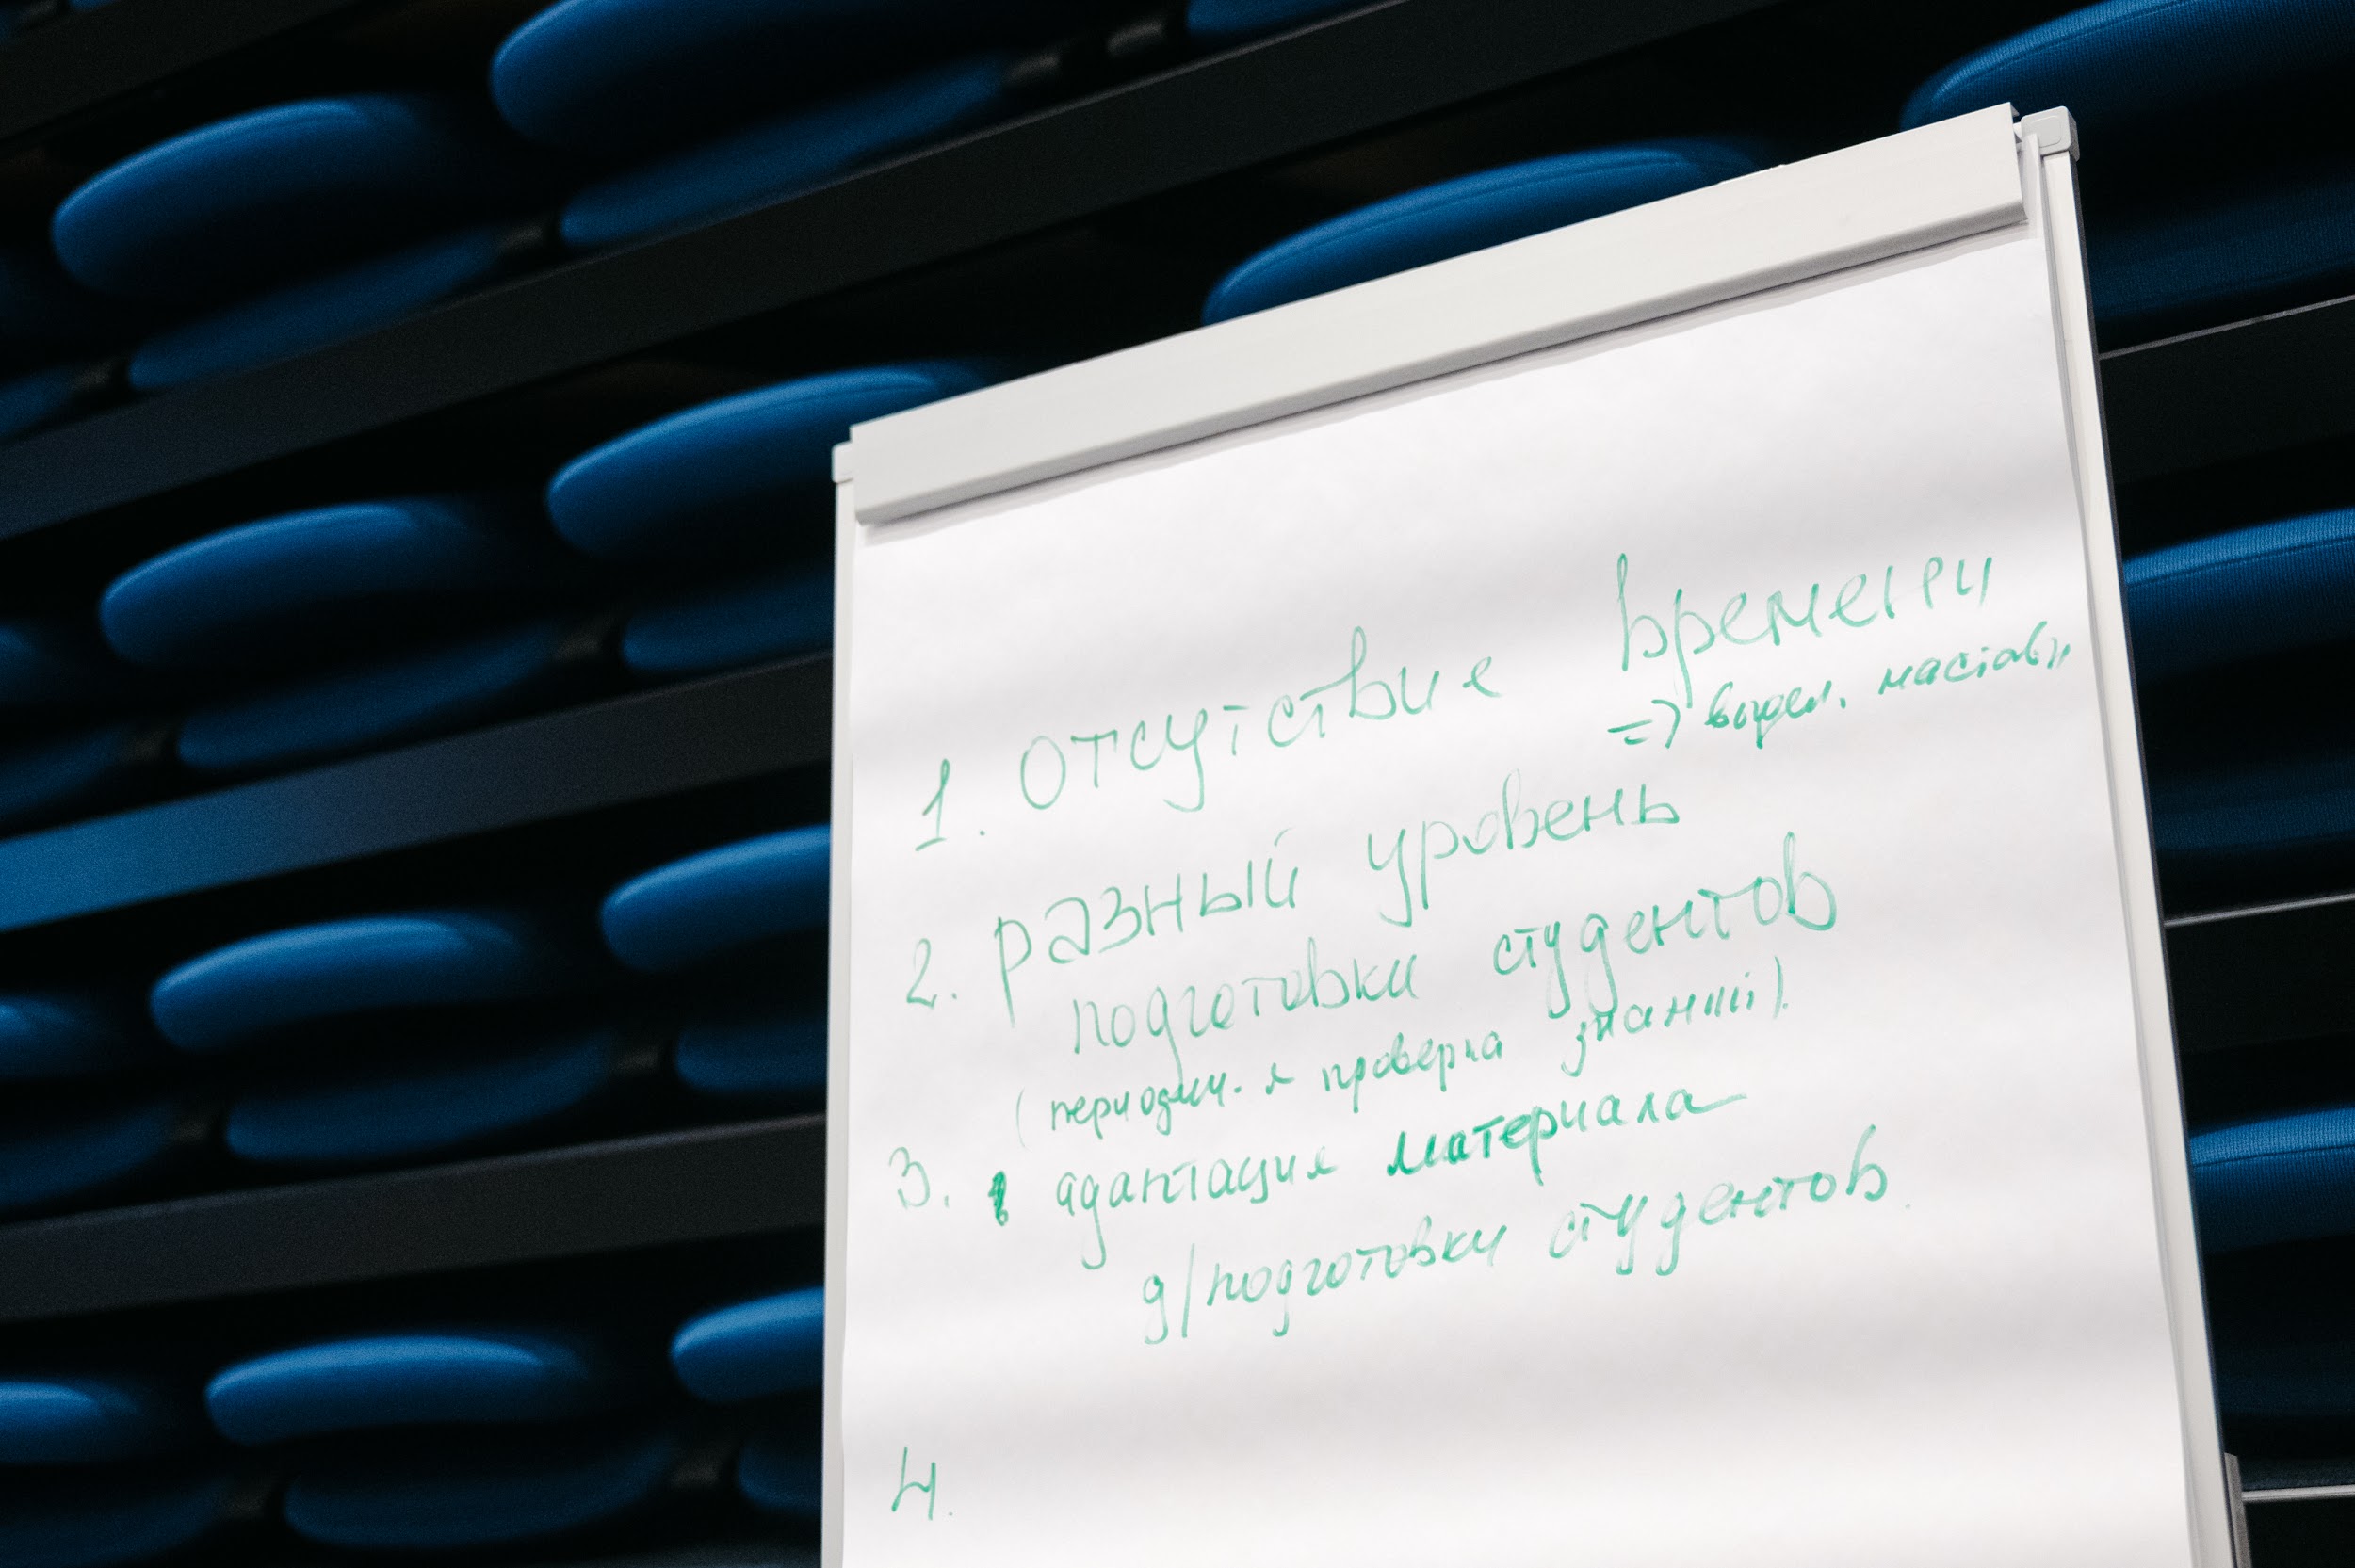 1. Отсутствие времени
=> выдел.
2. разный уровень
подготовки студентов
(периодич. я проверка знаний).
3. адаптация материала
д/подготовки студентов.
4.